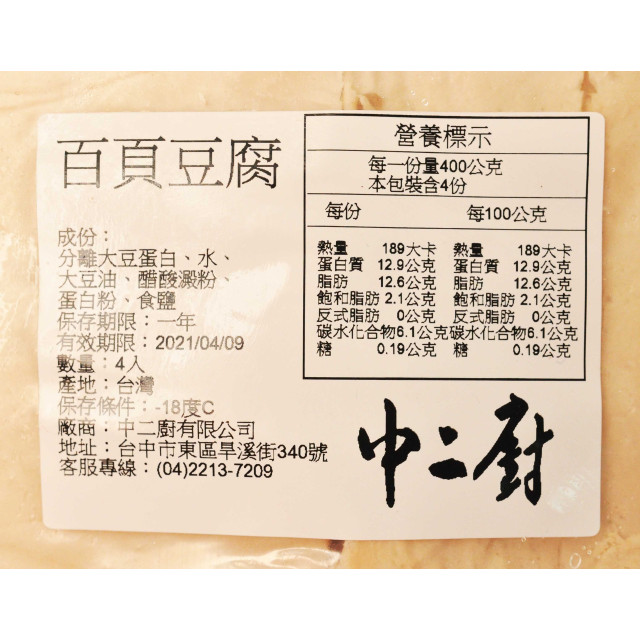 百頁豆腐
成份：
分離大豆蛋白、水、
大豆油、醋酸澱粉、
蛋白粉、食鹽
保存期限：一年
有效期限：2021/04/09
數量：4入
產地：台灣
保存條件：-18度C
廠商：中二廚有限公司
地址：台中市東區旱溪街340號
客服專線：(04)2213-7209
營養標示
每一份量400公克
本包裝含4份
每份 每100公克
熱量 189大卡 熱量 189大卡
蛋白質 12.9公克 蛋白質 12.9公克
脂肪 12.6公克 脂肪 12.6公克
飽和脂肪 2.1公克 飽和脂肪 2.1公克
反式脂肪 0公克 反式脂肪 0公克
碳水化合物6.1公克 碳水化合物6.1公克
糖 0.19公克 糖 0.19公克
中二廚